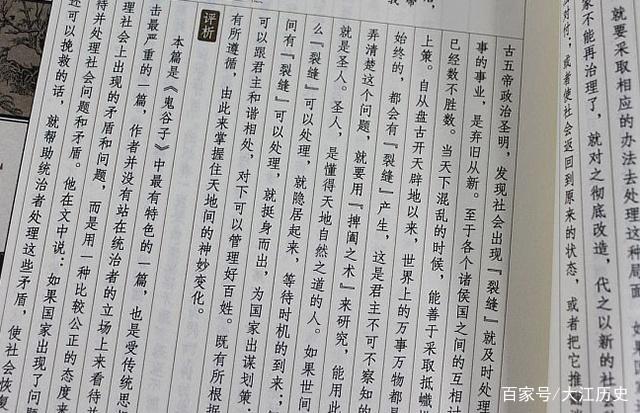 就要采取相应的办法去处理这种局面。如
家不能再治理了，就对之彻底改造，代之以新的社
么对付；或者使社会返回到原来的状态，或者把它推
古五帝政治圣明，发现社会出现『裂缝』就及时处理
事的事业，是弃旧从新。至于各个诸侯国之间的互相
已经数不胜数。当天下混乱的时候，能善于采取抵巇
上策。自从盘古开天辟地以来，世界上的万事万物都
始终的，都会有『裂缝』产生，这是君主不可不察知的
弄清楚这个问题，就要用『捭阖之术』来研究，能用此
就是圣人。圣人，是懂得天地自然之道的人。如果世间
么『裂缝』可以处理，就隐居起来，等待时机的到来；
问有『裂缝』可以处理，就挺身而出，为国家出谋划策：
可以跟君主和谐相处，对下可以管理好百姓。既有所根据
有所遵循，由此来掌握住天地间的神妙变化。
评析
本篇是《鬼谷子》中最有特色的一篇，也是受传统思想
击最严重的一篇，作者并没有站在统治者的立场上来看待
理社会上出现的矛盾和问题，而是用一种比较公正的态度来
待并处理社会问题和矛盾。他在文中说：如果国家出现了问题
还可以挽救的话，就帮助统治者处理这些矛盾，使社会恢复
百家号/大江历史